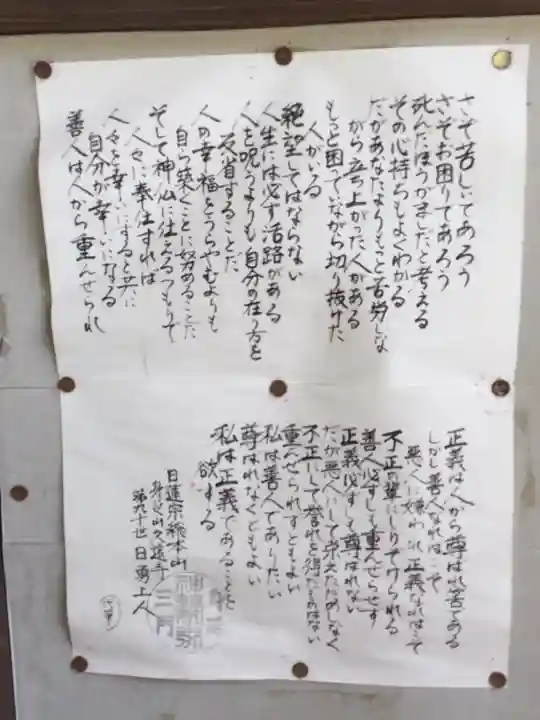 さぞ苦しいであろう
さぞお困りであろう
死んだほうがましだと考える
その心持ちもよくわかる
だがあなたよりもっと苦労しな
がら立ち上がった人がある
もっと困っていながら切り抜けた
人がいる
絶望してはならない
人生には必ず活路がある
人を呪うよりも自分の在り方を
反省することだ
人の幸福をうらやむよりも
自ら築くことに努めることだ
そして神仏に仕えるつもりで
人々に奉仕すれば
人々を幸いにすると共に
自分が幸いになる
善人は人から重んぜられ
正義は人から尊ばれ苦である
しかし善人なればこそ
悪人に嫌われ正義なればこそ
不正の輩にしりぞけられる
善人必ずしも重んぜらせず
正義必ずしも尊ばれない
だが悪人にして栄えたためしなく
不正にして誉れを得たものはない
重んぜられずともよい
私は善人でありたい
尊ばれなくともよい
私は正義であることを
欲する
日蓮宗総本山
身延山久遠寺
第九十世日勇上人